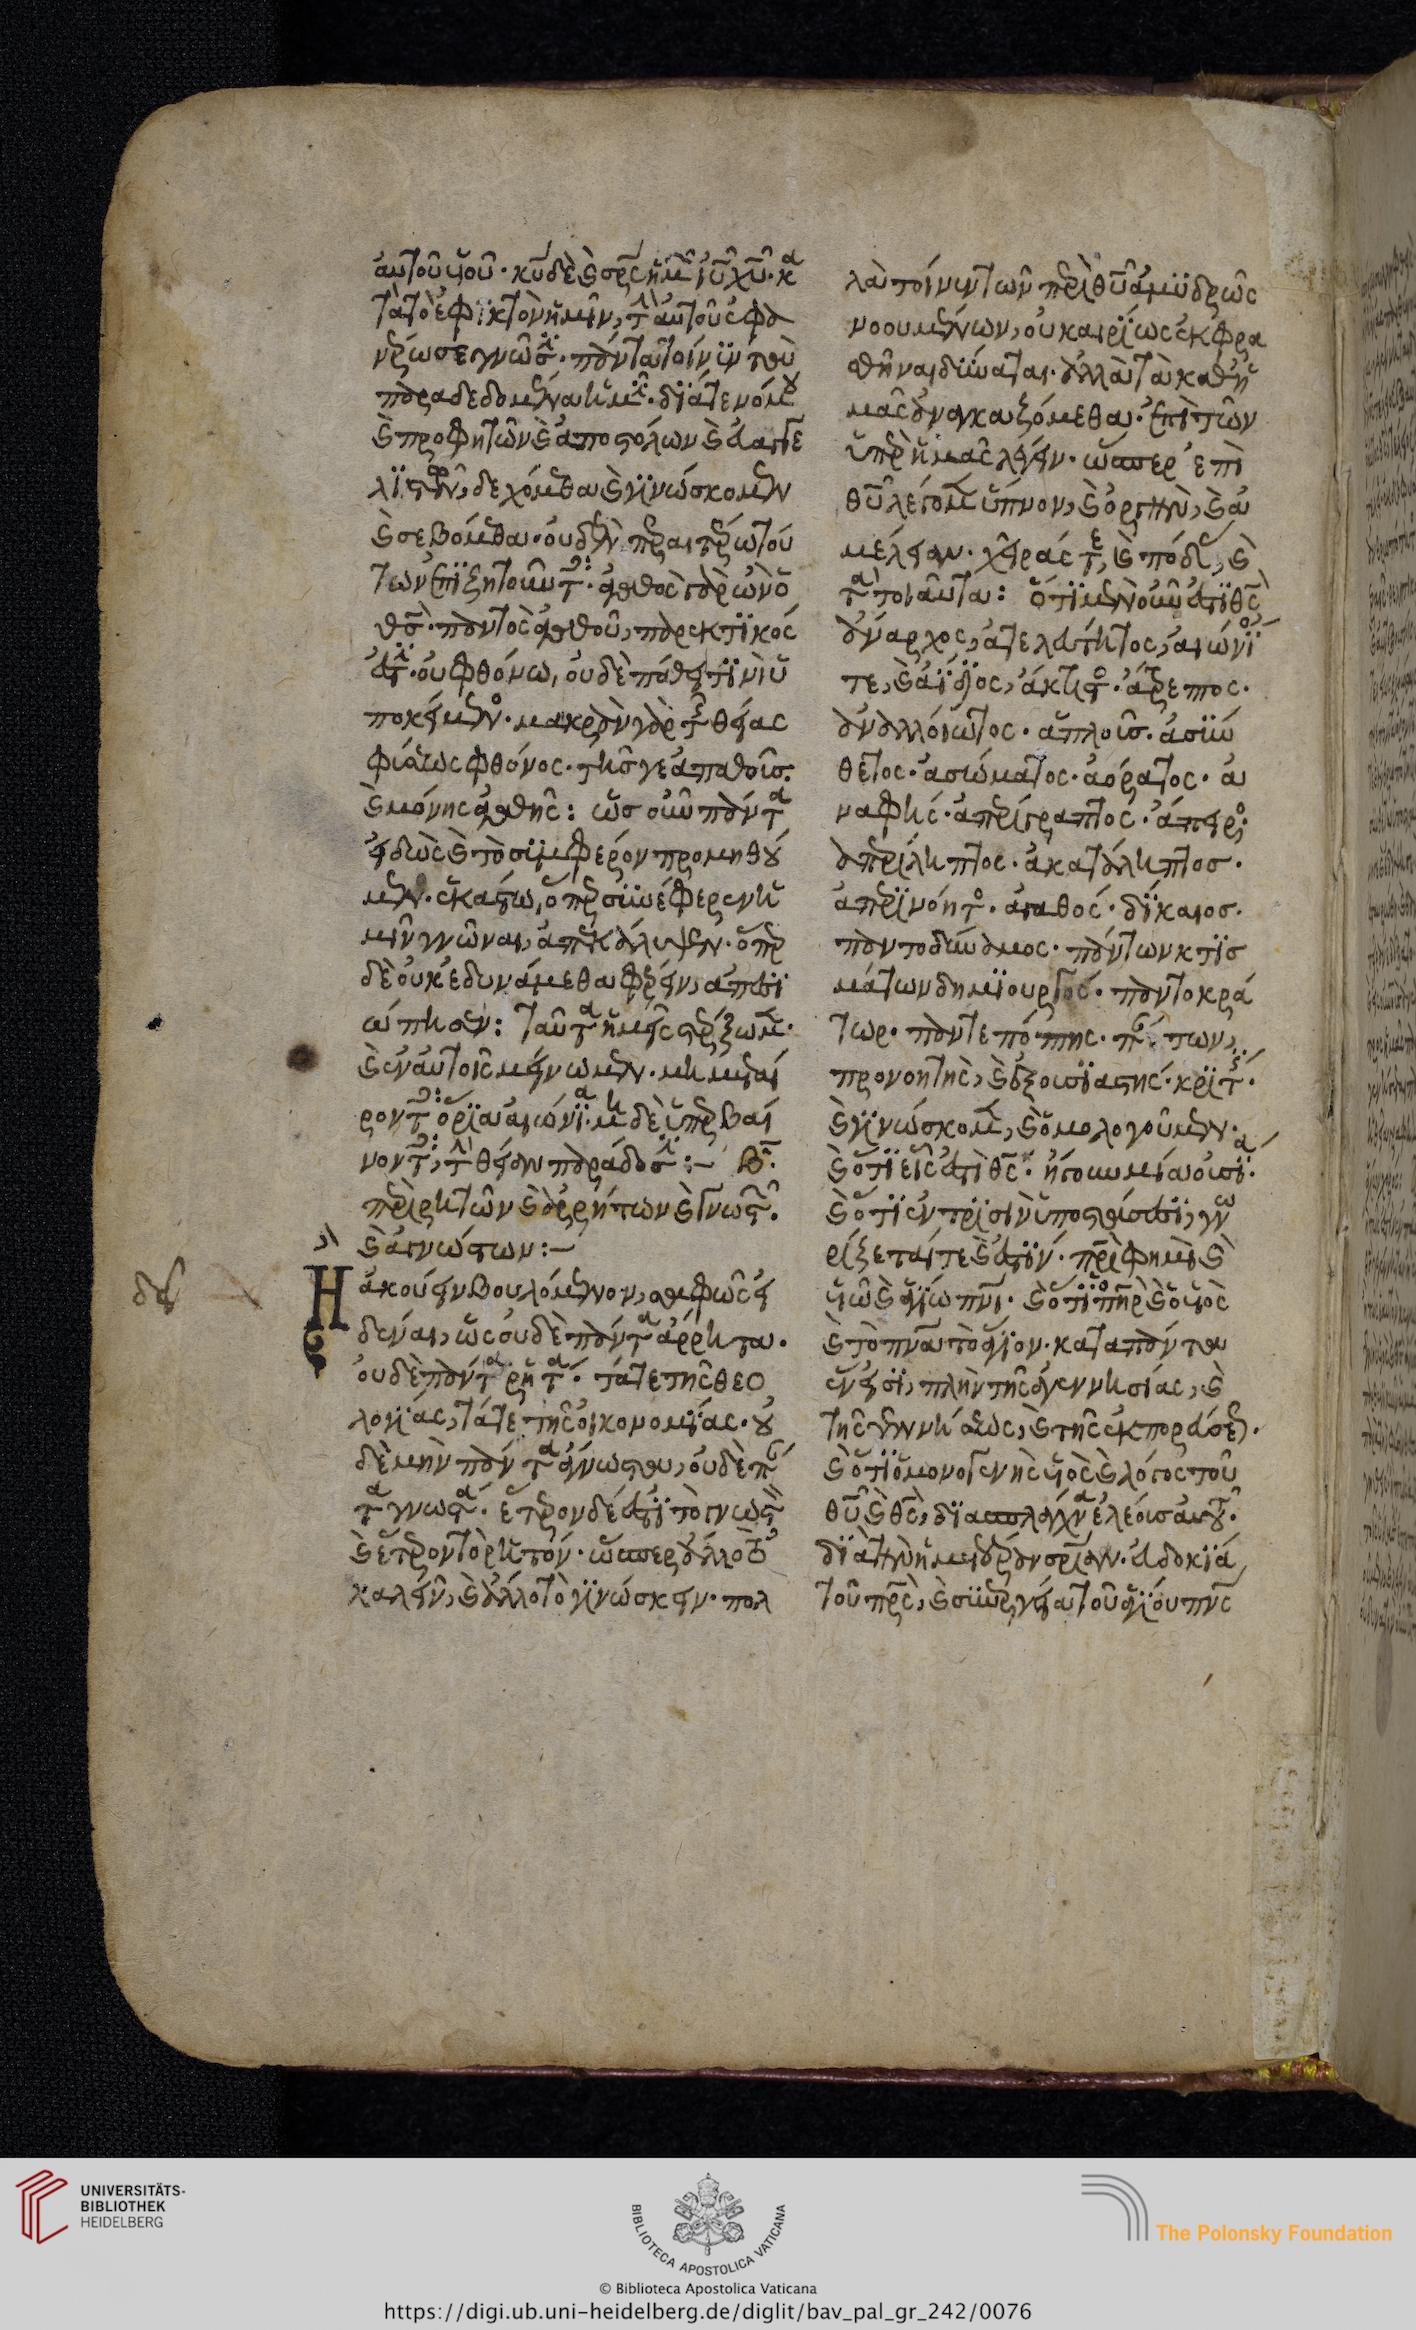 αὐτοῦ υἱοῦ· κυ δὲ καὶ σρς ἡμ ιυ χυ· κα
τὰ τὸ ἐφικτὸν ἡμῖν, τὴν αὐτοῦ ἐφα
νέρωσε γνῶσιν· πάντα τοίνυν τὰ
παραδεδομένα ἡμῖν· διά τε νόμου
καὶ προφητῶν καὶ ἀποστόλων καὶ εὐαγγε
λιστῶν, δεχόμεθα καὶ γινώσκομεν
καὶ σεβόμεθα· οὐδὲν περαιτέρω τού
των ἐπιζητοῦντες· ἀγαθὸς γὰρ ὢν ὁ
θς· παντὸς ἀγαθοῦ, παρεκτικός
ἐστιν· οὐ φθόνω, οὐδὲ πάθει τινὶ ὑ
ποκείμενος· μακρὰν γὰρ τῆς θείας
φύσεως φθόνος· τῆς γε ἀπαθοῦς
καὶ μόνης ἀγαθῆς: ὡς οὖν πάντα
εἰδὼς καὶ τὸ συμφέρον προμηθού
μενος ἑκάστω, ὅπερ συνέφερεν ἡ
μῖν γνῶναι, ἀπεκάλυψεν· ὅπερ
δὲ οὐκ ἐδυνάμεθα φέρειν, ἀπεσι
ώπησεν: ταῦτα ἡμεῖς στέρξωμεν·
καὶ ἐν αὐτοῖς μείνωμεν· μὴ μεταί
ροντες ὅρια αἰώνια· μηδὲ ὑπερβαί
νοντες, τὴν θείαν παράδοσιν:– Β·
περὶ ῥητῶν καὶ ἀρρήτων καὶ γνωστῶν
καὶ ἀγνώστων:–
Η ἀκούειν βουλόμενον, σαφῶς εἰ
δέναι, ὡς οὐδὲ πάντα ἄρρητα·
οὐδὲ πάντα ῥητά· τά τε τῆς θεο
λογίας, τά τε τῆς οἰκονομίας· οὐ
δὲ μὴν πάντα ἄγνωστα, οὐδὲ πάν
τα γνωστά· ἕτερον δέ ἐστι τὸ γνωστὸν
καὶ ἕτερον τὸ ῥητόν· ὥσπερ ἄλλο τὸ
λαλεῖν, καὶ ἄλλο τὸ γινώσκειν· πολ
λὰ τοίνυν τῶν περὶ θυ ἀμυδρῶς
νοουμένων, οὐ καιρίως ἐκφρα
σθῆναι δύναται· ἀλλὰ τὰ καθ' ἡ
μᾶς ἀναγκαζόμεθα· ἐπὶ τῶν
ὑπὲρ ἡμᾶς λέγειν· ὥσπερ ἐπὶ
θυ λέγομεν ὕπνον, καὶ ὀργὴν, καὶ ἀ
μέλειαν· χεῖράς τε, καὶ πόδας, καὶ
τὰ τοιαῦτα: ὅτι μὲν οὖν ἐστι θς
ἄναρχος, ἀτελεύτητος, αἰώνιός
τε, καὶ ἀΐδιος, ἄκτιστος· ἄτρεπτος·
ἀναλλοίωτος· ἁπλοῦς· ἀσύν
θετος· ἀσώματος· ἀόρατος· ἀ
ναφής· ἀπερίγραπτος· ἄπειρος·
ἀπερίληπτος· ἀκατάληπτος·
ἀπερινόητος· ἀγαθός· δίκαιος·
παντοδύναμος· πάντων κτισ
μάτων δημιουργός· παντοκρά
τωρ· παντεπόπτης· πάντων,
προνοητὴς, καὶ ἐξουσιαστής· κριτής·
καὶ γινώσκομεν, καὶ ὁμολογοῦμεν·
καὶ ὅτι εἷς ἐστὶ θς· ἤγουν μία οὐσία·
καὶ ὅτι ἐν τρισὶν ὑποστάσεσι, γνω
ρίζεταί τε καὶ ἐστίν· πρι φημὶ καὶ
υἱῶ καὶ ἁγίω πνι· καὶ ὅτι ὁ πηρ καὶ ὁ υἱὸς
καὶ τὸ πνα τὸ ἅγιον· κατὰ πάντα
ἕν εἰσι, πλὴν τῆς ἀγεννησίας, καὶ
τῆς γεννήσεως, καὶ τῆς ἐκπορεύσεως·
καὶ ὅτι ὁ μονογενὴς υἱὸς καὶ λόγος τοῦ
θυ καὶ θς, διὰ σπλάγχνα ἐλέους αὐτοῦ·
διὰ τὴν ἡμετέραν σριαν· εὐδοκία
τοῦ πρς, καὶ συνεργεία τοῦ ἁγίου πνς
UNIVERSITÄTS-
BIBLIOTHEK
HEIDELBERG
BIBLIOTECA APOSTOLICA VATICANA
© Biblioteca Apostolica Vaticana
The Polonsky Foundation
https://digi.ub.uni-heidelberg.de/diglit/bav_pal_gr_242/0076